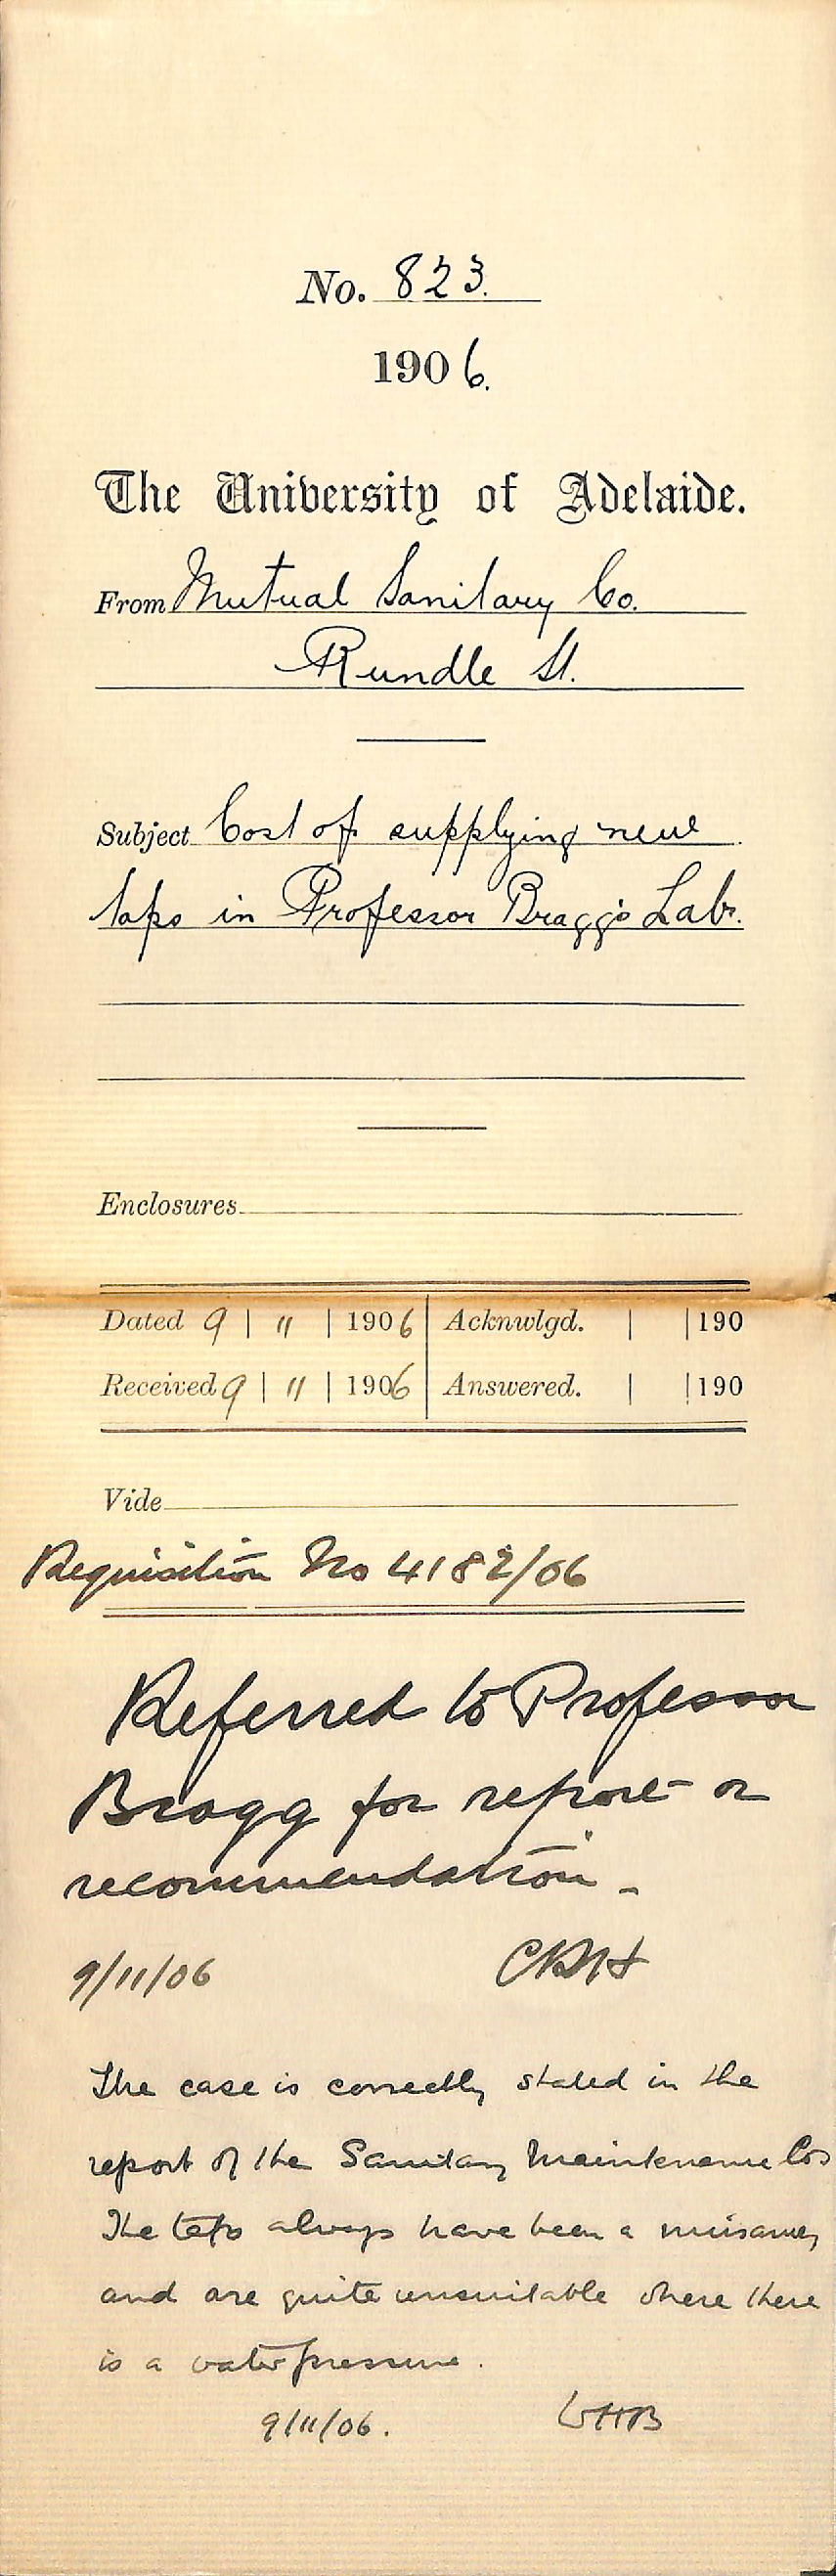 No. 823.
1906.
The University of Adelaide.
From Mutual Sanitary Co.
Rundle St.
Subject Cost of supplying new
taps in Professor Bragg's Lab.
Enclosures
Dated 9 | 11 | 1906 | Acknwlgd. | | 190
Received 9 | 11 | 1906 | Answered. | | 190
Vide
Requisition No 4182/06
Referred to Professor
Bragg for report or
recommendation -
9/11/06 CRH
The case is correctly stated in the
report of the Sanitary Maintenance Co
The taps always have been a nuisance,
and are quite unsuitable where there
is a water pressure.
9/11/06. WHB